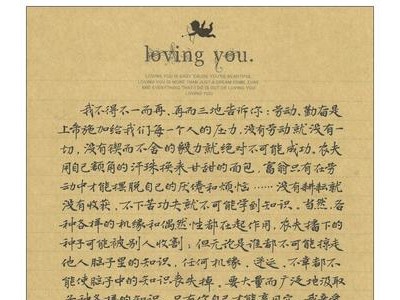 loving you.
LOVING YOU IS EASY 'CAUSE YOU'RE BEAUTIFUL
LOVING YOU IS MORE THAN JUST A DREAM COME TRUE
AND EVERYTHING THAT I DO IS OUT OF LOVING YOU
LOVING YOU
我不得不一而再、再而三地告诉你：劳动、勤奋是
上帝施加给我们每一个人的压力，没有劳动就没有一
切，没有锲而不舍的毅力就绝对不可能成功。农夫
用自己额角的汗珠换来甘甜的面包，富翁只有在劳
动中才能摆脱自己的厌倦和烦恼……没有耕耘就
没有收获，不下苦功夫就不可能学到知识。当然，各
种各样的机缘和偶然性都在起作用，农夫播下的
种子可能被别人收割；但无论是谁都不可能掠走
他人脑子里的知识，任何机缘、迷运、不幸都不
能使脑中的知识丧失掉。要大量而广泛地汲取